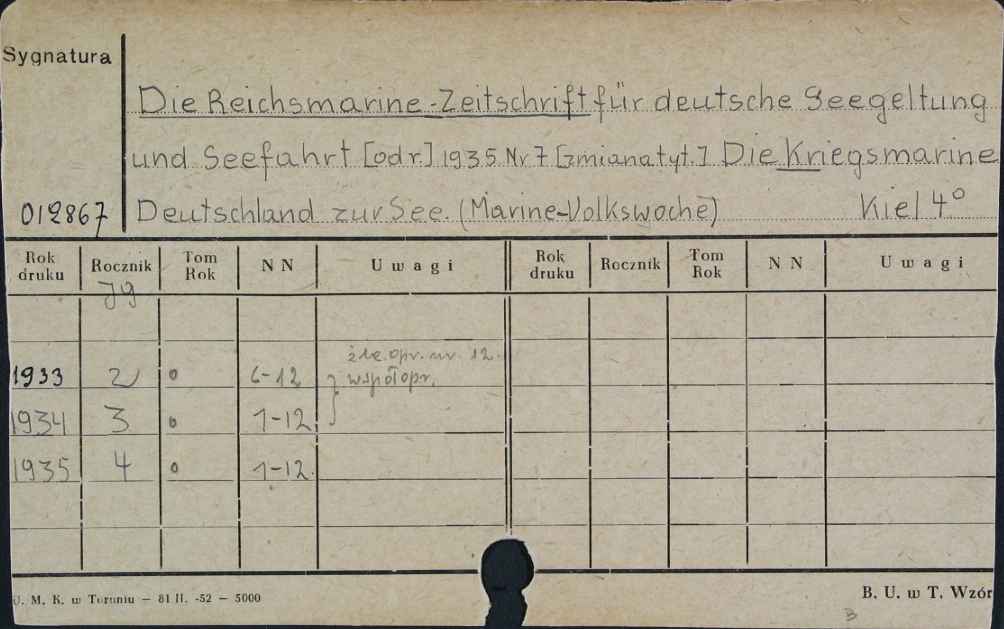 Sygnatura
Die Reichsmarine-Zeitschrift für deutsche Seegeltung
und Seefahrt [od r.] 1935 Nr 7 [zmiana tyt.] Die Kriegsmarine
012867 Deutschland zur See. (Marine-Volkswoche) Kiel 4°
Rok druku Rocznik Tom Rok N N Uwagi Rok druku Rocznik Tom Rok N N Uwagi
Jg
źle opr. nr. 12.
1933 2 o 6-12 } współopr.
1934 3 o 1-12
1935 4 o 1-12.
U. M. K. w Toruniu — 81 II. -52 — 5000 B. U. w T. Wzór
B